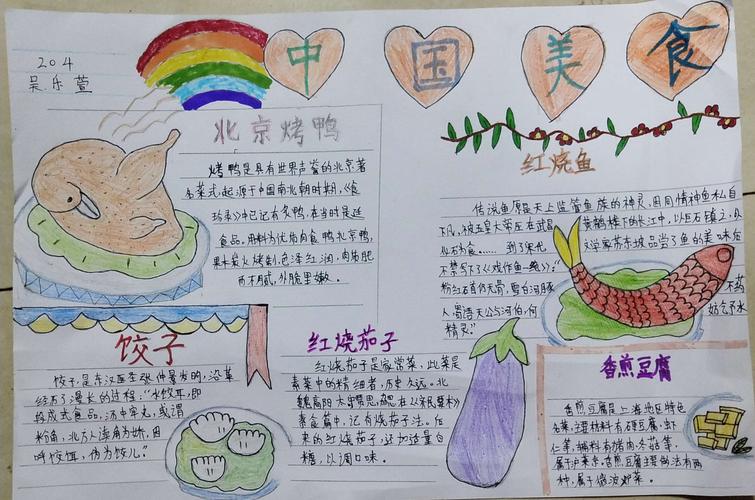 204
吴乐萱
中国美食
北京烤鸭
烤鸭是具有世界声誉的北京著
名菜式，起源于中国南北朝时期，《食
珍录》中已记有炙鸭，在当时是宫廷
食品，用料为优质肉食鸭北京鸭，
果木炭火烤制，色泽红润，肉质肥
而不腻，外脆里嫩。
红烧鱼
传说鱼原是天上监管鱼族的神灵，因同情神鱼私自
下凡，被玉皇大帝压在武昌
黄鹤楼下的长江中，以巨石镇之，从
此石为食……到了宋代
文学家苏东坡品尝了鱼的美味后
不禁写下《戏作鱼一绝》：“
粉红石首仍无骨，雪白河豚
不药
人，寄语天公与河伯，何
妨乞与水
精灵”
饺子
饺子是东汉医圣张仲景发明，
经历了漫长的过程：“水饺耳，即
段成式食品，汤中牢丸，或谓
粉角，北方人读角为娇，因
呼饺饵，伪为饺儿”
红烧茄子
红烧茄子是家常菜，此菜是
素菜中的精细者，历史久远。北
魏高阳太守贾思勰在《齐民要术》
素食篇中，记有烧茄子法。后
来的红烧茄子，还加适量白
糖，以调口味。
香煎豆腐
香煎豆腐是上海地区特色
名菜，主要材料有硬豆腐、虾
仁等，辅料有猪肉、冬菇等，
属于沪菜系。香煎豆腐主要做法有两
种，属于